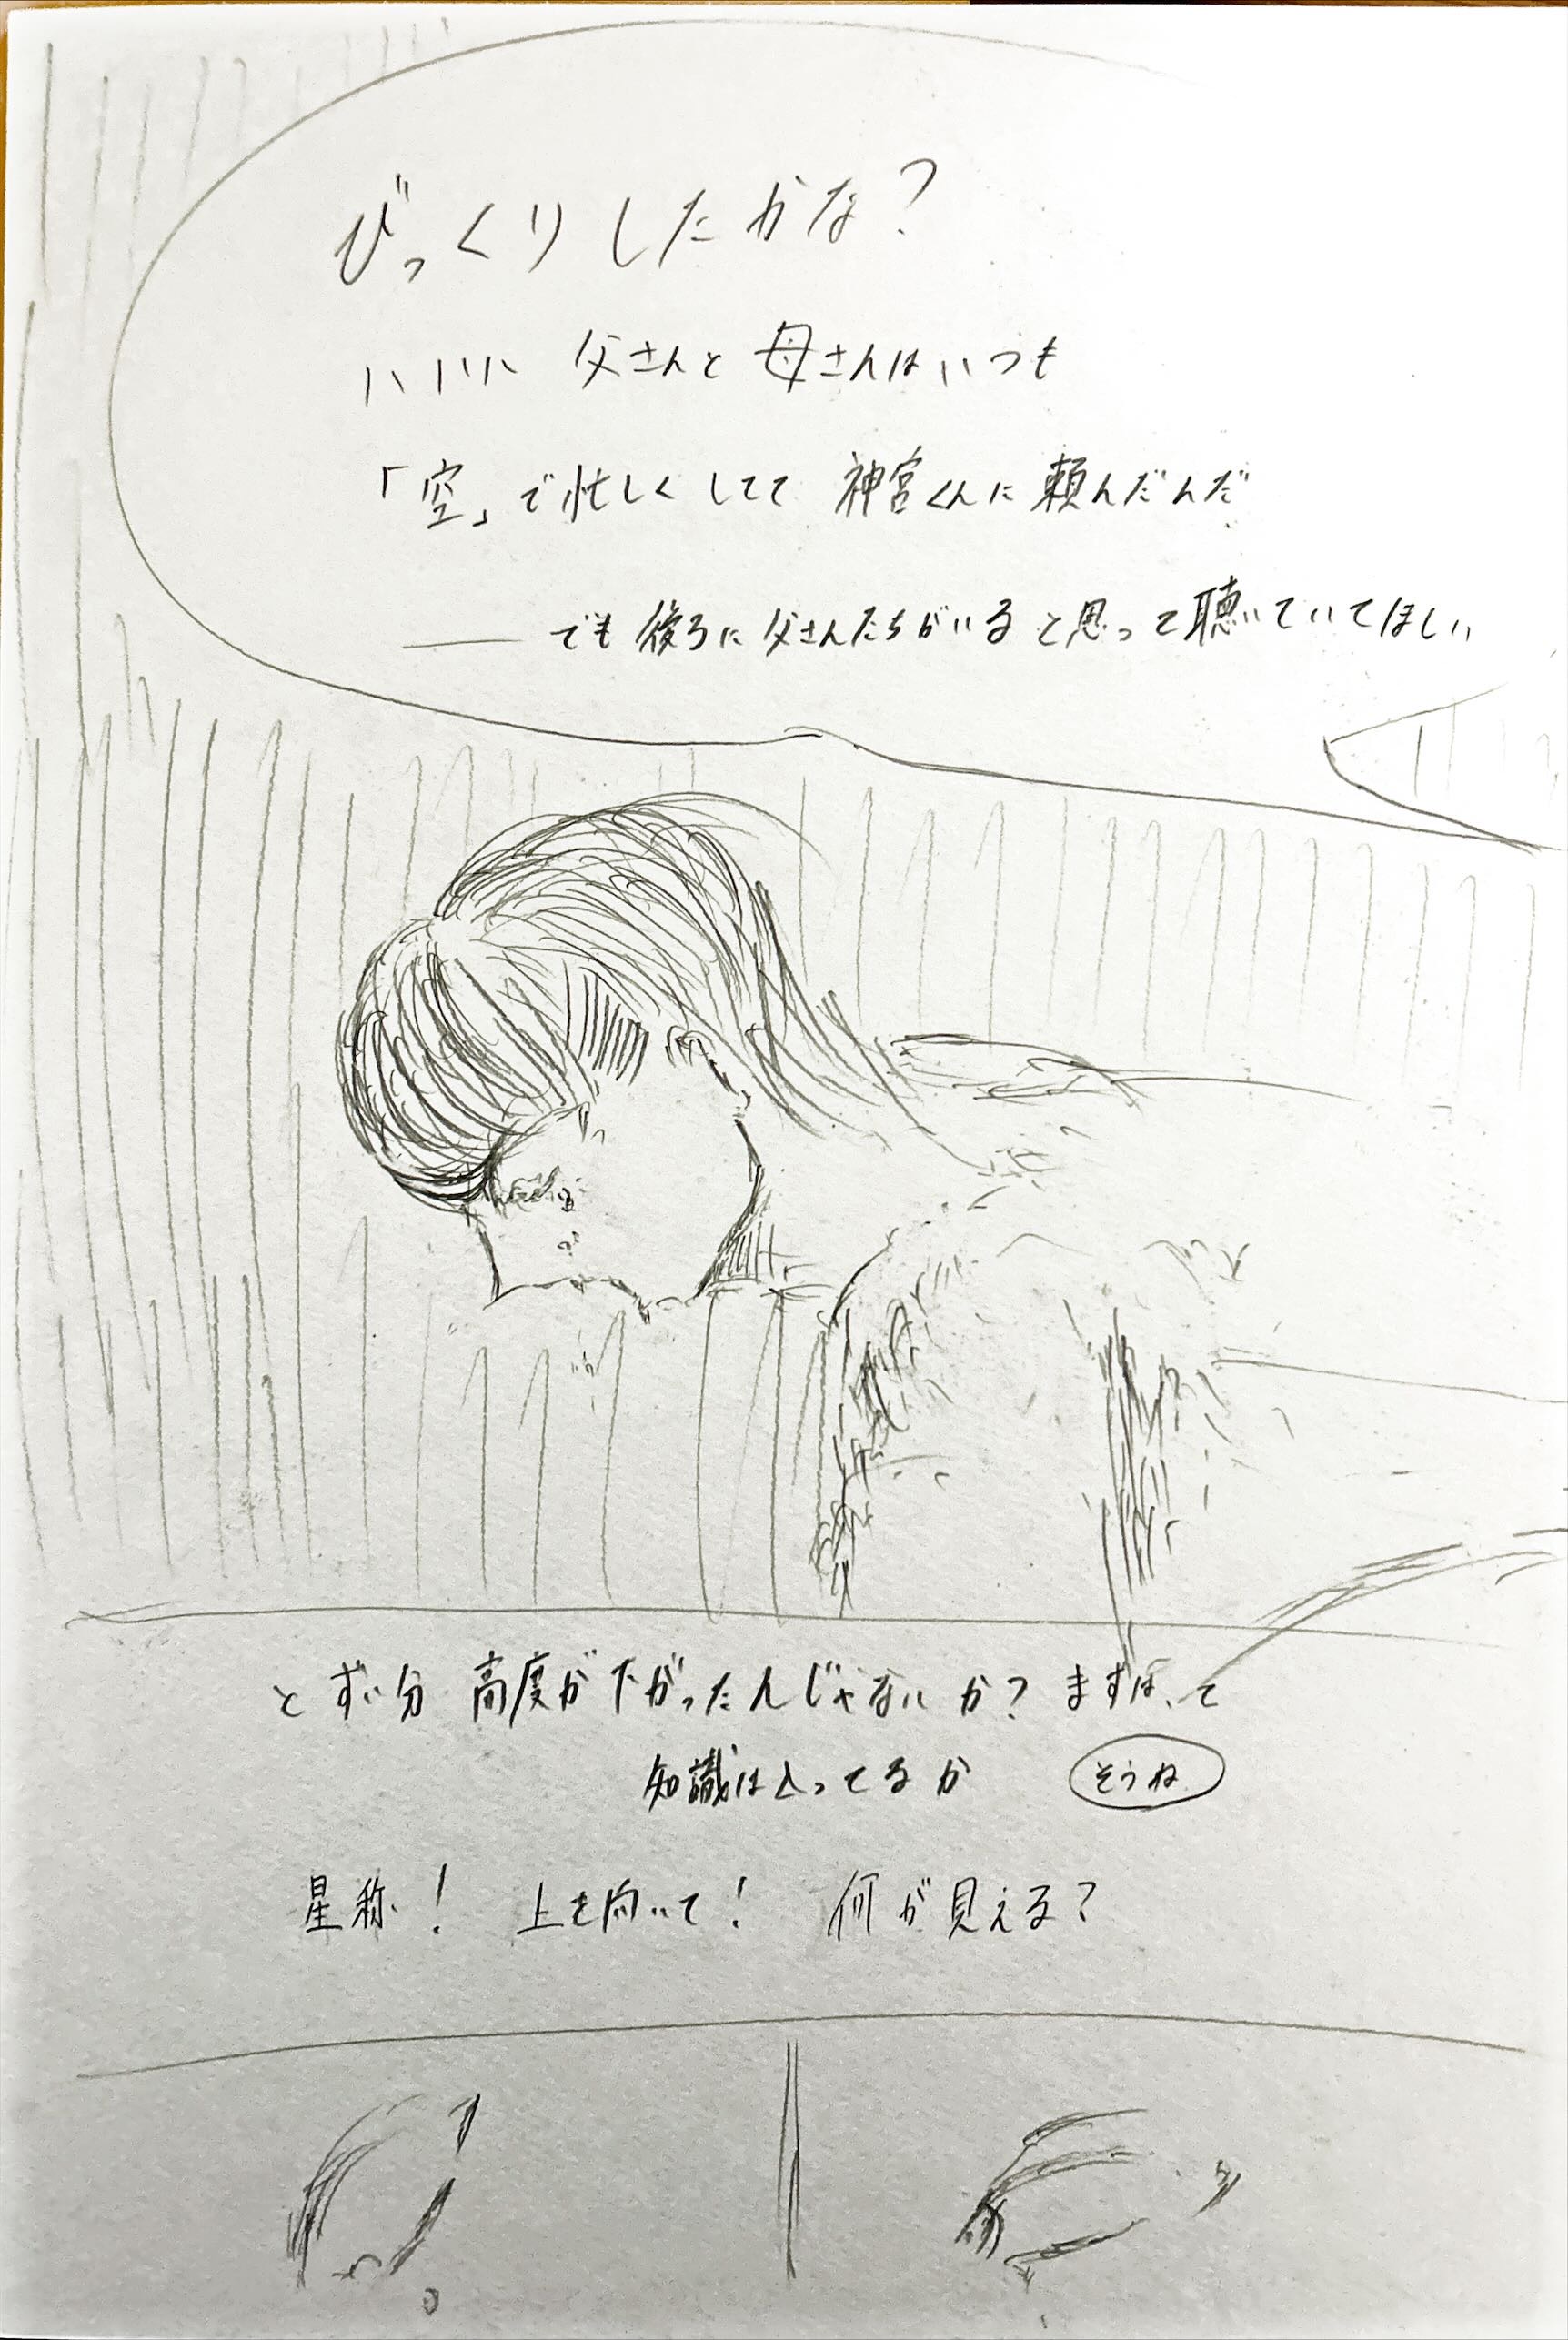 びっくりしたかな?
いいい 父さんと母さんはいつも
「空」で忙しくしてて 神宮くんに頼んだんだ
――でも後ろに父さんたちがいると思って聴いていてほしい
とずい分 高度が下がったんじゃないか? まずは、て
知識は入ってるか
そうね
星称! 上を向いて! 何が見える?